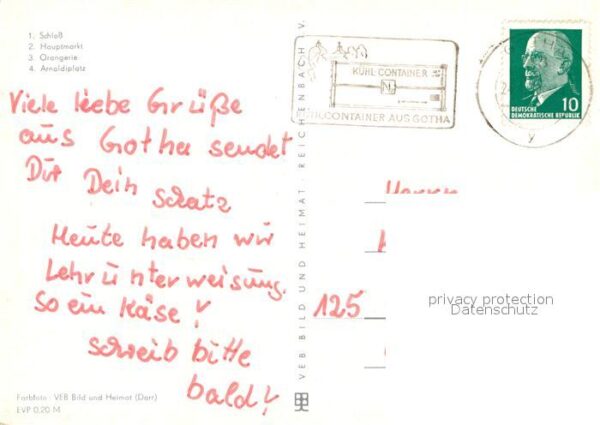 1. Schloß
2. Hauptmarkt
3. Orangerie
4. Arnoldiplatz
Viele liebe Grüße
aus Gotha sendet
Dir Dein
Schatz
Heute haben wir
Lehrunterweisung.
So ein Käse!
Schreib bitte
bald!
Farbfoto: VEB Bild und Heimat (Darr)
EVP 0,20 M
VEB BILD UND HEIMAT REICHENBACH V.
KÜHL CONTAINER
KÜHLCONTAINER AUS GOTHA
DEUTSCHE
DEMOKRATISCHE REPUBLIK
10
y
Herrn
125
privacy protection
Datenschutz